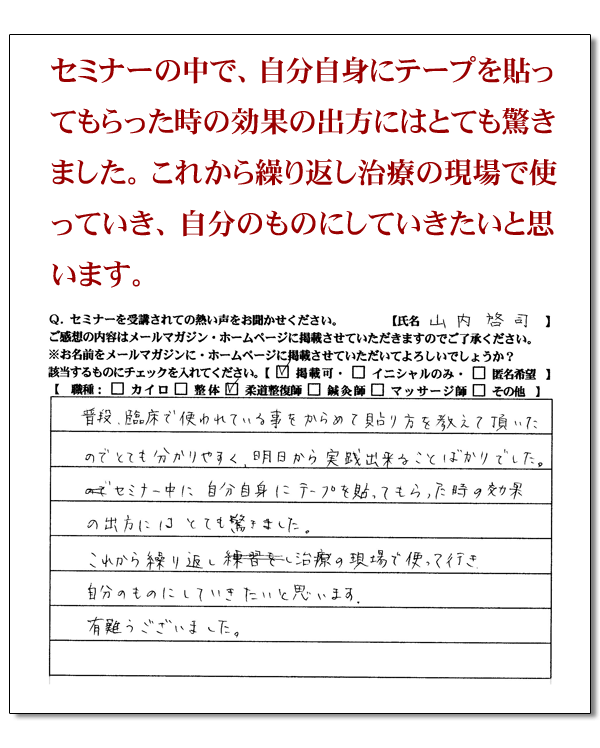 セミナーの中で、自分自身にテープを貼っ
てもらった時の効果の出方にはとても驚き
ました。これから繰り返し治療の現場で使
っていき、自分のものにしていきたいと思
います。
Q. セミナーを受講されての熱い声をお聞かせください。 【氏名 山内 啓司 】
ご感想の内容はメールマガジン・ホームページに掲載させていただきますのでご了承ください。
※お名前をメールマガジンに・ホームページに掲載させていただいてよろしいでしょうか？
該当するものにチェックを入れてください。【 ☑ 掲載可・ □ イニシャルのみ・ □ 匿名希望 】
【 職種： □ カイロ □ 整体 ☑ 柔道整復師 □ 鍼灸師 □ マッサージ師 □ その他 】
普段、臨床で使われている事をからめて貼り方を教えて頂いた
のでとても分かりやすく、明日から実践出来ることばかりでした。
セミナー中に自分自身にテープを貼ってもらった時の効果
の出方にはとても驚きました。
これから繰り返し練習をし治療の現場で使って行き
自分のものにしていきたいと思います。
有難うございました。